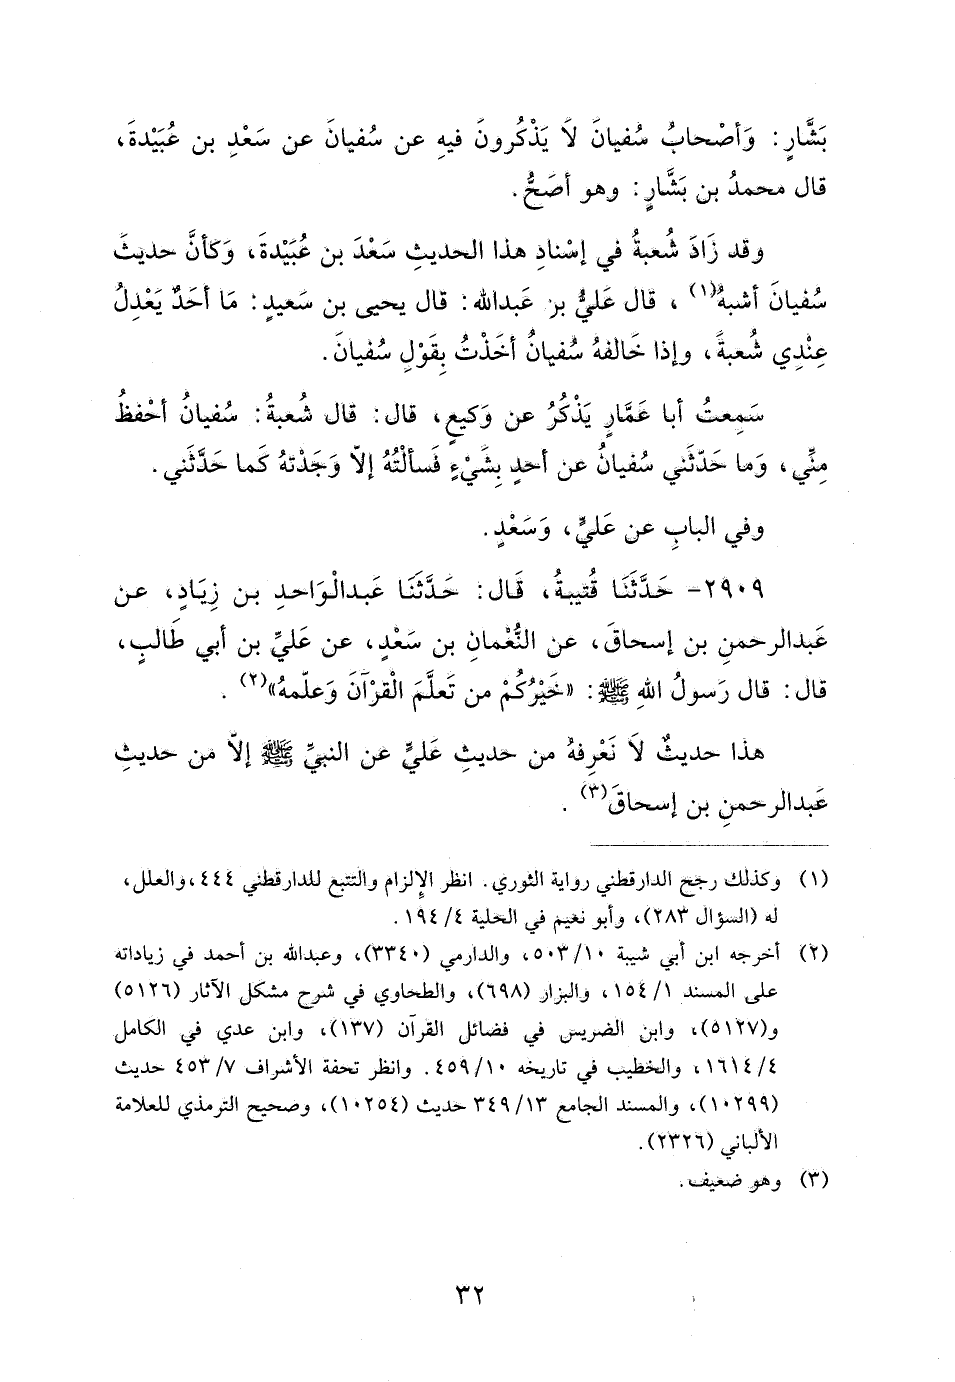 بَشَّارٍ: وَأصْحابُ سُفيانَ لاَ يَذْكُرونَ فيهِ عن سُفيانَ عن سَعْدِ بن عُبَيْدةَ،
قال محمدُ بن بَشَّارٍ: وهو أصَحُّ.
وقد زَادَ شُعبةُ في إسْنادِ هذا الحديثِ سَعْدَ بن عُبَيْدةَ، وَكأنَّ حديثَ
سُفيانَ أشبهُ(١)، قال عَليُّ بن عَبدالله: قال يحيى بن سَعيدٍ: مَا أحَدٌ يَعْدِلُ
عِنْدِي شُعبةَ، وإذا خَالفهُ سُفيانُ أخَذْتُ بِقَوْلِ سُفيانَ.
سَمِعتُ أبا عَمَّارٍ يَذْكُرُ عن وَكيعٍ، قال: قال شُعبةُ: سُفيانُ أحْفظُ
مِنِّي، وَما حَدّثَني سُفيانُ عن أحدٍ بِشَيْءٍ فَسألْتُهُ إلاّ وَجَدْتهُ كَما حَدَّثَني.
وفي البابِ عن عَليٍّ، وَسَعْدٍ.
٢٩٠٩- حَدَّثَنَا قُتيبةُ، قَال: حَدَّثَنَا عَبدالْوَاحدِ بن زِيَادٍ، عن
عَبدالرحمنِ بن إسحاقَ، عن النُّعْمانِ بن سَعْدٍ، عن عَليِّ بن أبي طَالبٍ،
قال: قال رَسولُ اللهِ ﷺ: «خَيْرُكُمْ من تَعلَّمَ الْقرْآنَ وَعلّمهُ»(٢).
هذا حديثٌ لاَ نَعْرِفهُ من حديثِ عَليٍّ عن النبيِّ ﷺ إلاّ من حديثِ
عَبدالرحمنِ بن إسحاقَ(٣).
(١) وكذلك رجح الدارقطني رواية الثوري. انظر الإلزام والتتبع للدارقطني ٤٤٤، والعلل،
له (السؤال ٢٨٣)، وأبو نعيم في الحلية ٤/ ١٩٤.
(٢) أخرجه ابن أبي شيبة ١٠/ ٥٠٣، والدارمي (٣٣٤٠)، وعبدالله بن أحمد في زياداته
على المسند ١/ ١٥٤، والبزار (٦٩٨)، والطحاوي في شرح مشكل الآثار (٥١٢٦)
و(٥١٢٧)، وابن الضريس في فضائل القرآن (١٣٧)، وابن عدي في الكامل
٤/ ١٦١٤، والخطيب في تاريخه ١٠/ ٤٥٩. وانظر تحفة الأشراف ٧/ ٤٥٣ حديث
(١٠٢٩٩)، والمسند الجامع ١٣/ ٣٤٩ حديث (١٠٢٥٤)، وصحيح الترمذي للعلامة
الألباني (٢٣٢٦).
(٣) وهو ضعيف.
٣٢